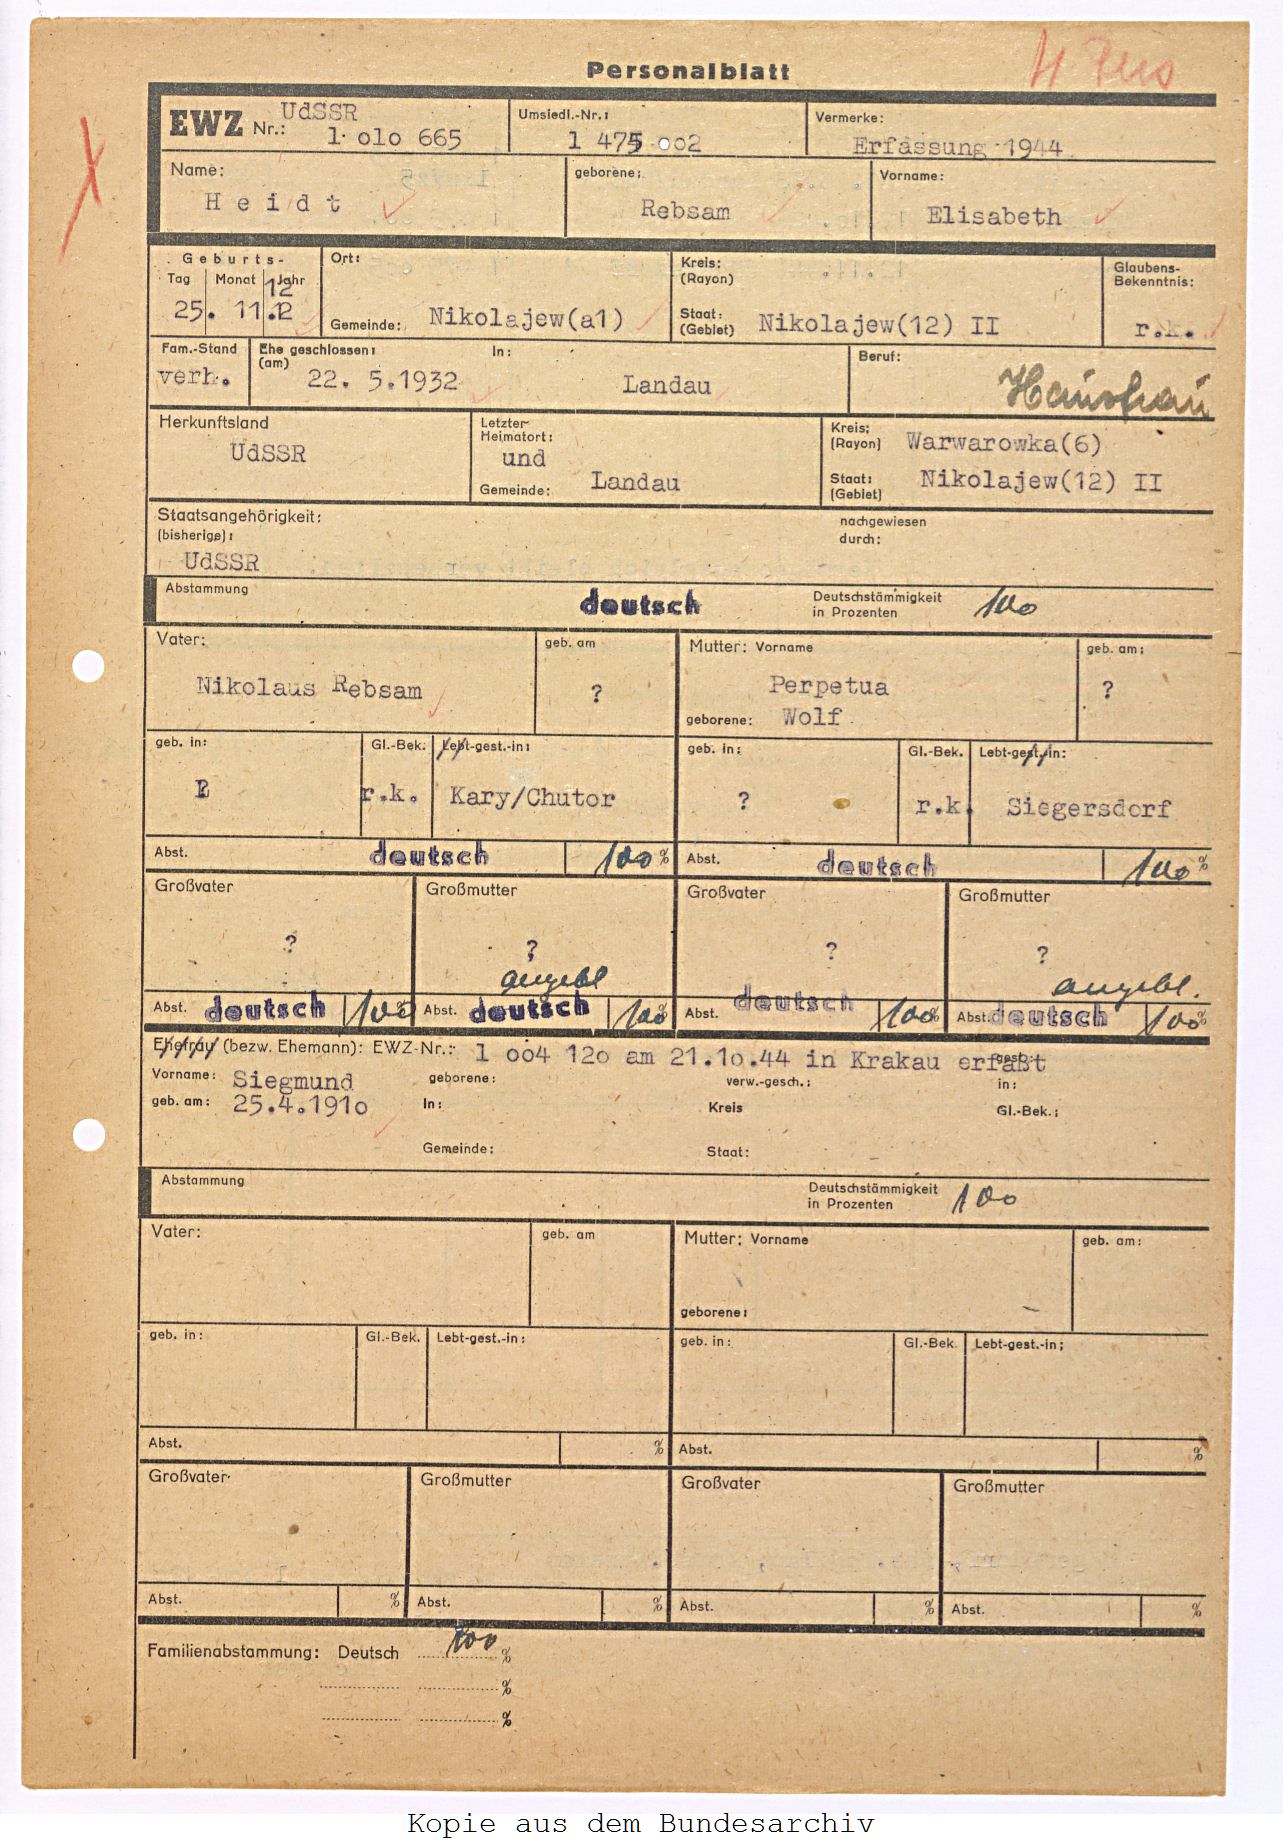 4 Pers
Personalblatt
EWZ Nr.: UdSSR 1 010 665
Umsiedl.-Nr.: 1 475 002
Vermerke: Erfassung 1944
Name: Heidt
geborene: Rebsam
Vorname: Elisabeth
Geburts-
Tag Monat Jahr
12
25. 11.12
Ort:
Gemeinde: Nikolajew(a1)
Kreis: (Rayon)
Staat: (Gebiet) Nikolajew(12) II
Glaubens-Bekenntnis: r.k.
Fam.-Stand verh.
Ehe geschlossen: (am) 22. 5.1932 In: Landau
Beruf: Hausfrau
Herkunftsland UdSSR
Letzter Heimatort: und
Gemeinde: Landau
Kreis: (Rayon) Warwarowka(6)
Staat: (Gebiet) Nikolajew(12) II
Staatsangehörigkeit: (bisherige): UdSSR
nachgewiesen durch:
Abstammung deutsch
Deutschstämmigkeit in Prozenten 100
Vater: Nikolaus Rebsam
geb. am ?
Mutter: Vorname Perpetua
geborene: Wolf
geb. am: ?
geb. in:
Gl.-Bek: r.k.
Lebt-gest.-in: Kary/Chutor
geb. in: ?
Gl.-Bek. r.k.
Lebt-gest.-in: Siegersdorf
Abst. deutsch 100 %
Abst. deutsch 100 %
Großvater ?
Großmutter ?
Großvater ?
Großmutter ?
angebl
angebl.
Abst. deutsch 100
Abst. deutsch 100 %
Abst. deutsch 100 %
Abst. deutsch 100 %
Ehefrau (bezw. Ehemann): EWZ-Nr.: 1 004 120 am 21.10.44 in Krakau erfaßt
gest.:
Vorname: Siegmund geborene: verw.-gesch.: in:
geb. am: 25.4.1910 In: Kreis Gl.-Bek.:
Gemeinde: Staat:
Abstammung
Deutschstämmigkeit in Prozenten 100
Vater: geb. am Mutter: Vorname geb. am:
geborene:
geb. in: Gl.-Bek. Lebt-gest.-in: geb. in: Gl.-Bek. Lebt-gest.-in:
Abst. % Abst. %
Großvater Großmutter Großvater Großmutter
Abst. % Abst. % Abst. % Abst. %
Familienabstammung: Deutsch 100 %
%
%
Kopie aus dem Bundesarchiv